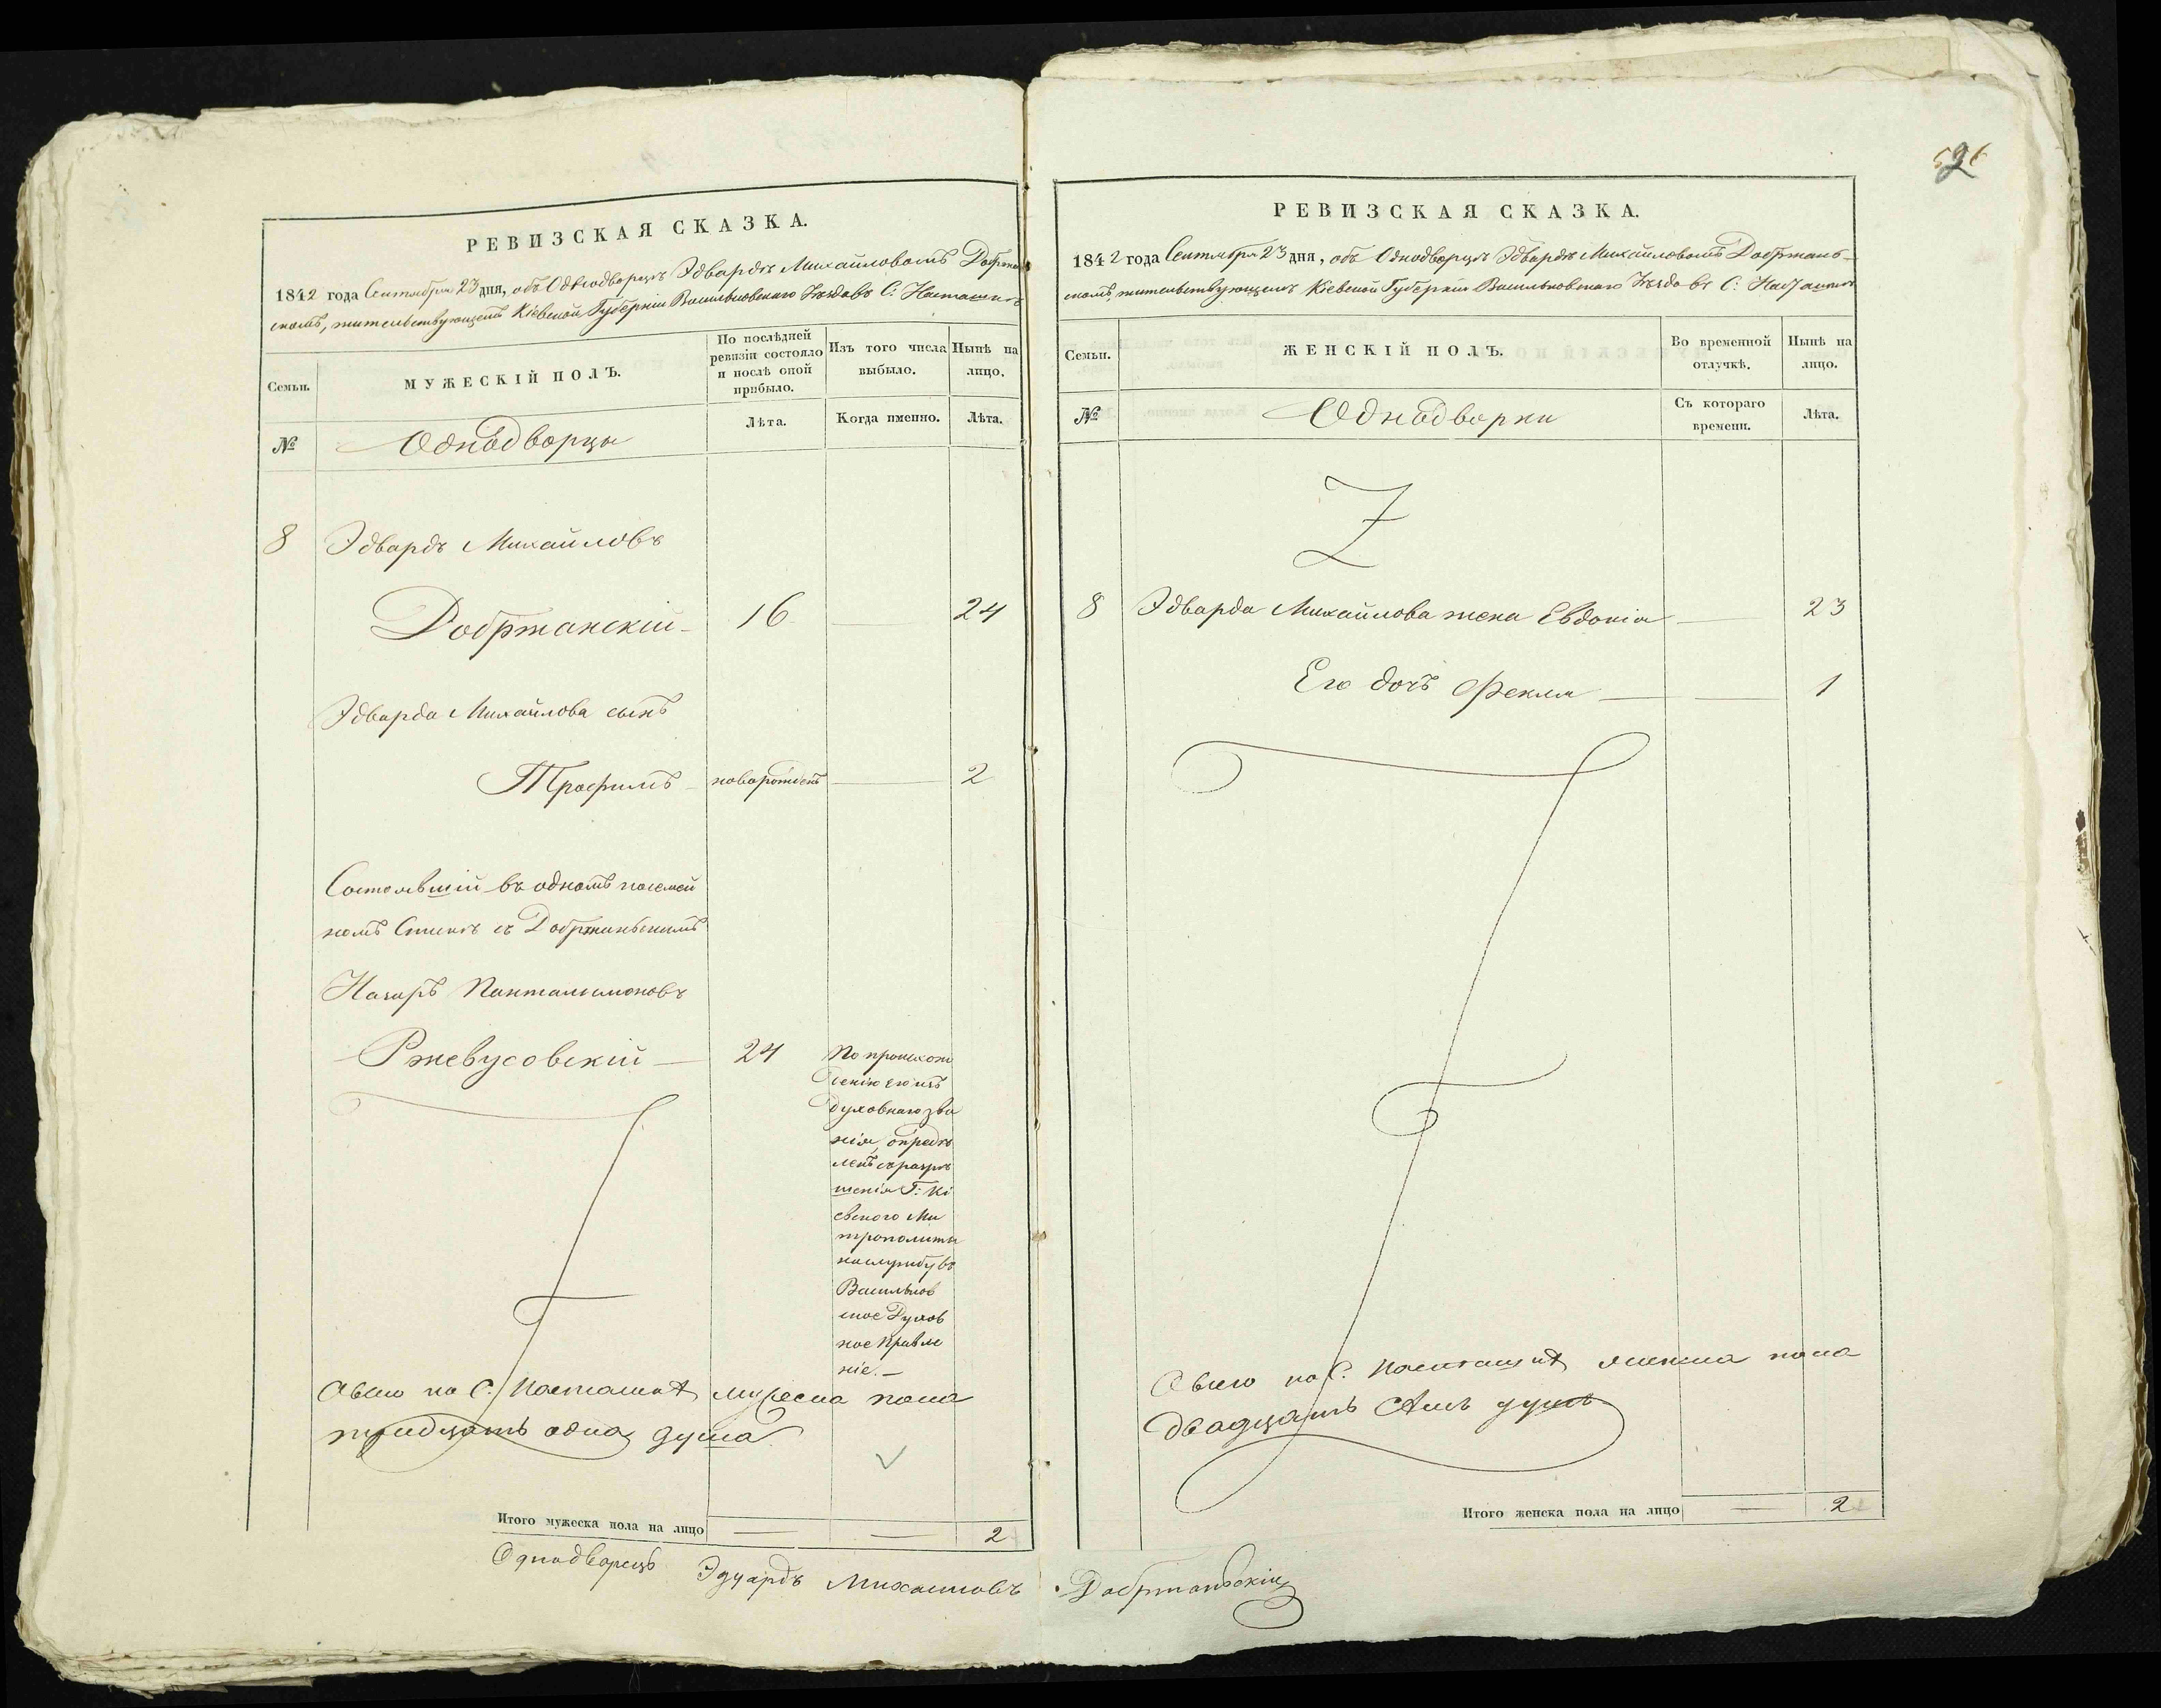 РЕВИЗСКАЯ СКАЗКА.
1842 года Сентября 23 дня, объ Однодворцѣ Эдвардѣ Михайловомъ Добржан
скомъ, жительствующемъ Кіевской Губерніи Васильковскаго Уѣзда въ С: Насташкѣ
Семьи.
МУЖЕСКІЙ ПОЛЪ.
По послѣдней
ревизіи состояло
и послѣ оной
прибыло.
Изъ того числа
выбыло.
Нынѣ на
лицо.
№
Однодворцы
Лѣта.
Когда именно.
Лѣта.
8 Эдвардъ Михайловъ
Добржанскій 16 24
Эдварда Михайлова сынъ
Трофимъ новорожденъ 2
Состоявшій въ одномъ посемей
номъ Спискѣ съ Добржанскимъ
Назаръ Панталимоновъ
Ржевусовскій 24
По происхож
денію его изъ
духовнаго зва
нія, опредѣ
ленъ съ разрѣ
шенія Г: Кі
евского Ми
трополита
на службу въ
Васильков
ское Духов
ное Правле
ніе.
А всего по С. Насташкѣ мужеска пола
тридцать одна душа
Итого мужеска пола на лицо 2
Однодворецъ Эдуардъ Михайловъ Добржанскій
526
2
РЕВИЗСКАЯ СКАЗКА.
1842 года Сентября 23 дня, объ Однодворцѣ Эдвардѣ Михайловомъ Добржан-
скомъ, жительствующемъ Кіевской Губерніи Васильковскаго Уѣзда въ С: Насташкѣ
Семьи.
ЖЕНСКІЙ ПОЛЪ.
Во временной
отлучкѣ.
Нынѣ на
лицо.
№
Однодворки
Съ котораго
времени.
Лѣта.
8 Эдварда Михайлова жена Евдокія 23
Его дочъ Фекла 1
А всего по С. Насташкѣ женска пола
двадцать семь душъ
Итого женска пола на лицо 2